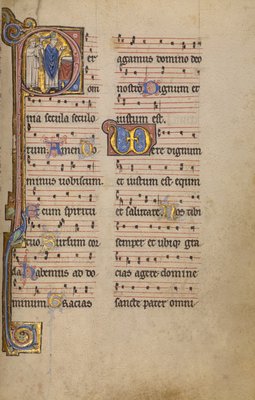 Per
om
nia secula seculo
rum. Amen. Do
minus vobiscum.
Et cum spiritu
tuo. Sursum cor
da. habemus ad do
minum. Gracias
agamus domino deo
nostro. Dignum et
iustum est.
Vere dignum
et iustum est equm
et salutare. Nos tibi
semper et ubiq; gra
cias agere. domine
sancte pater omni